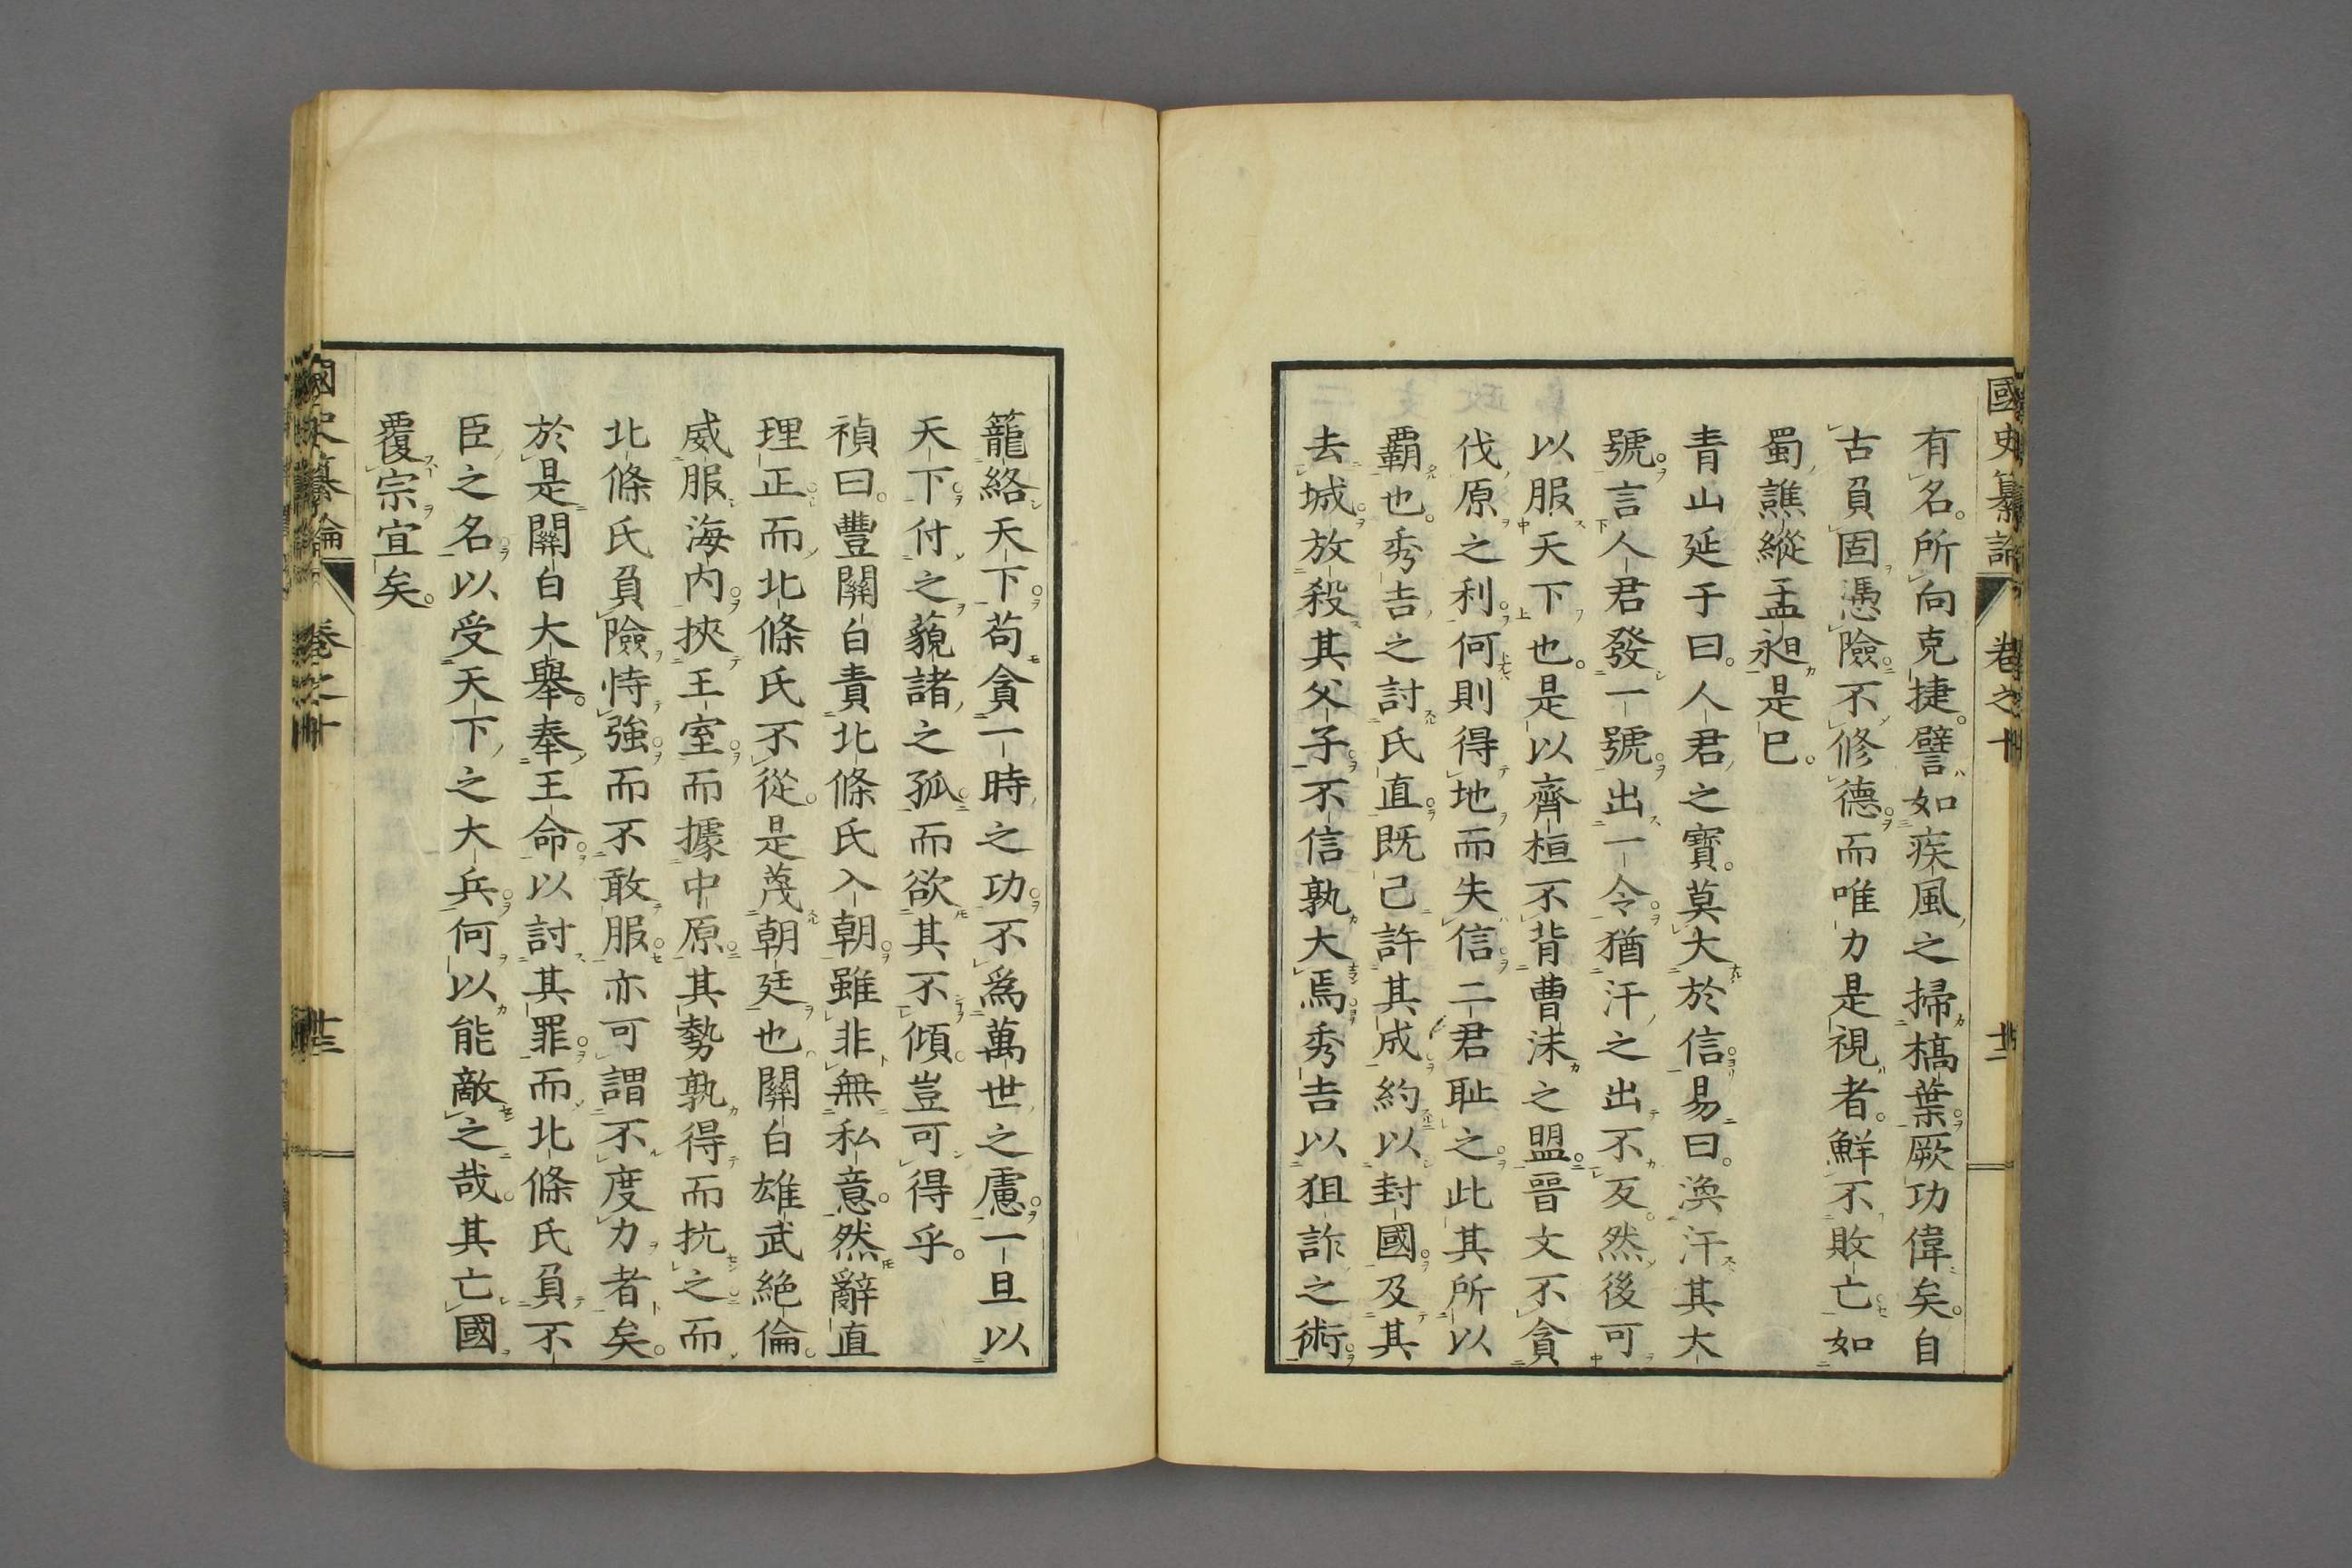 國史纂論 卷之十
有名。所向克捷。譬如疾風之掃槁葉。厥功偉矣。自
古負固憑險。不修德。而唯力是視者。鮮不敗亡。如
蜀譙縱孟昶是已。
青山延于曰。人君之寶。莫大於信。易曰。渙汗其大
號。言人君發一號。出一令。猶汗之出不反。然後可
以服天下也。是以齊桓不背曹沫之盟。晉文不貪
伐原之利。何則得地而失信。二君恥之。此其所以
覇也。秀吉之討氏直。既已許其成。約以封國。及其
去城。放殺其父子。不信孰大焉。秀吉以狙詐之術。
籠絡天下。苟貪一時之功。不爲萬世之慮。一旦以
天下付之藐諸之孤。而欲其不傾。豈可得乎。
禎曰。豐關白責北條氏入朝。雖非無私意。然辭直
理正。而北條氏不從。是蔑朝廷也。關白雄武絕倫。
威服海内。挾王室。而據中原。其勢孰得而抗之。而
北條氏負險恃強。而不敢服。亦可謂不度力者矣。
於是關白大舉。奉王命。以討其罪。而北條氏負不
臣之名。以受天下之大兵。何以能敵之哉。其亡國
覆宗宜矣。
國史纂論 卷之十